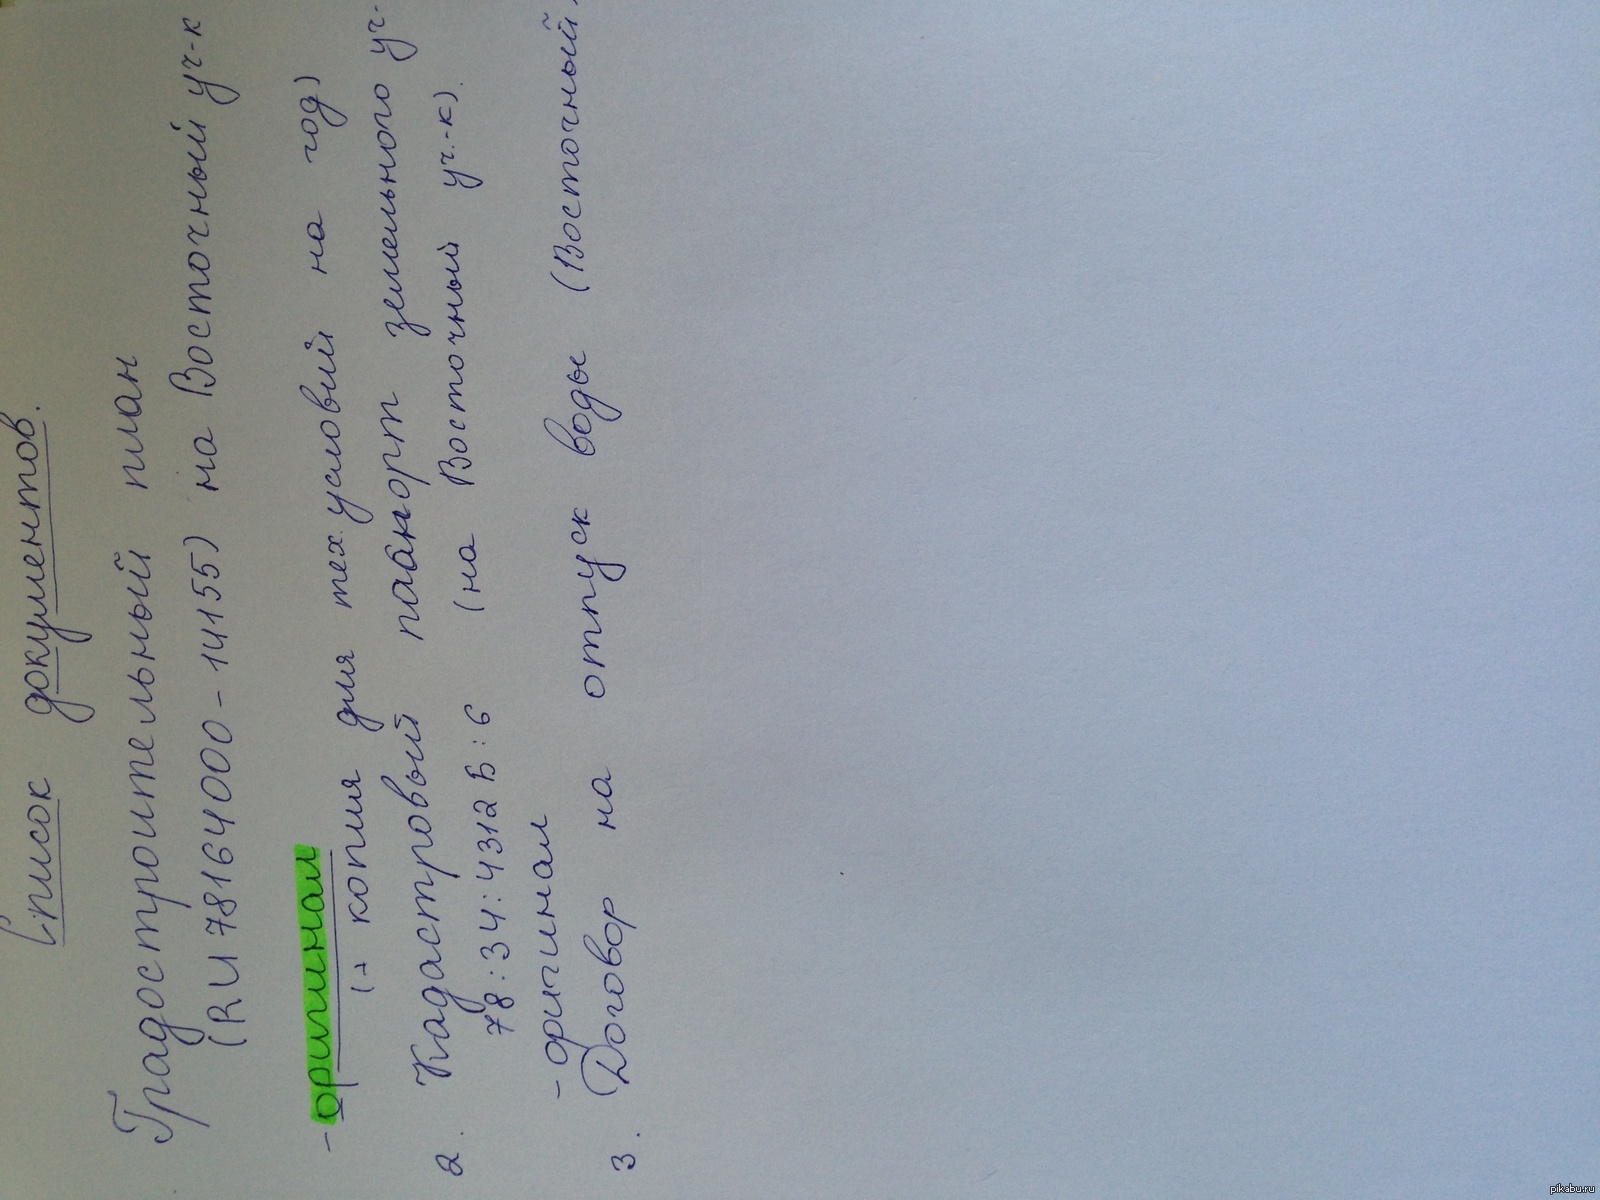 Список документов.
Градостроительный план
(RU 78164000 - 14155) на Восточный уч-к
- оригинал
(+ копия для тех. условий на год)
2. Кадастровый паспорт земельного уч-
78:34:4312 Б:6 (на Восточный уч.-к).
- оригинал
3. Договор на отпуск воды (Восточный
pikabu.ru